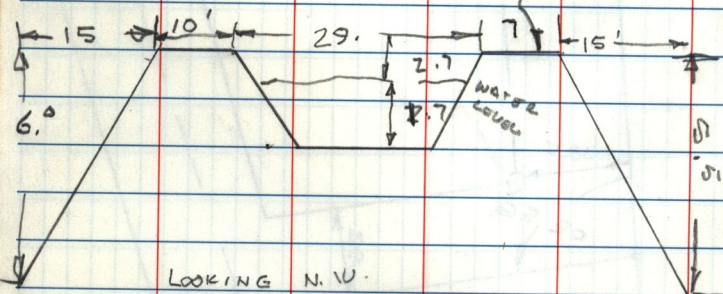 15 10' 29. 7 15'
2.7
WATER
LEVEL
6.0
5.5
LOOKING N.W.